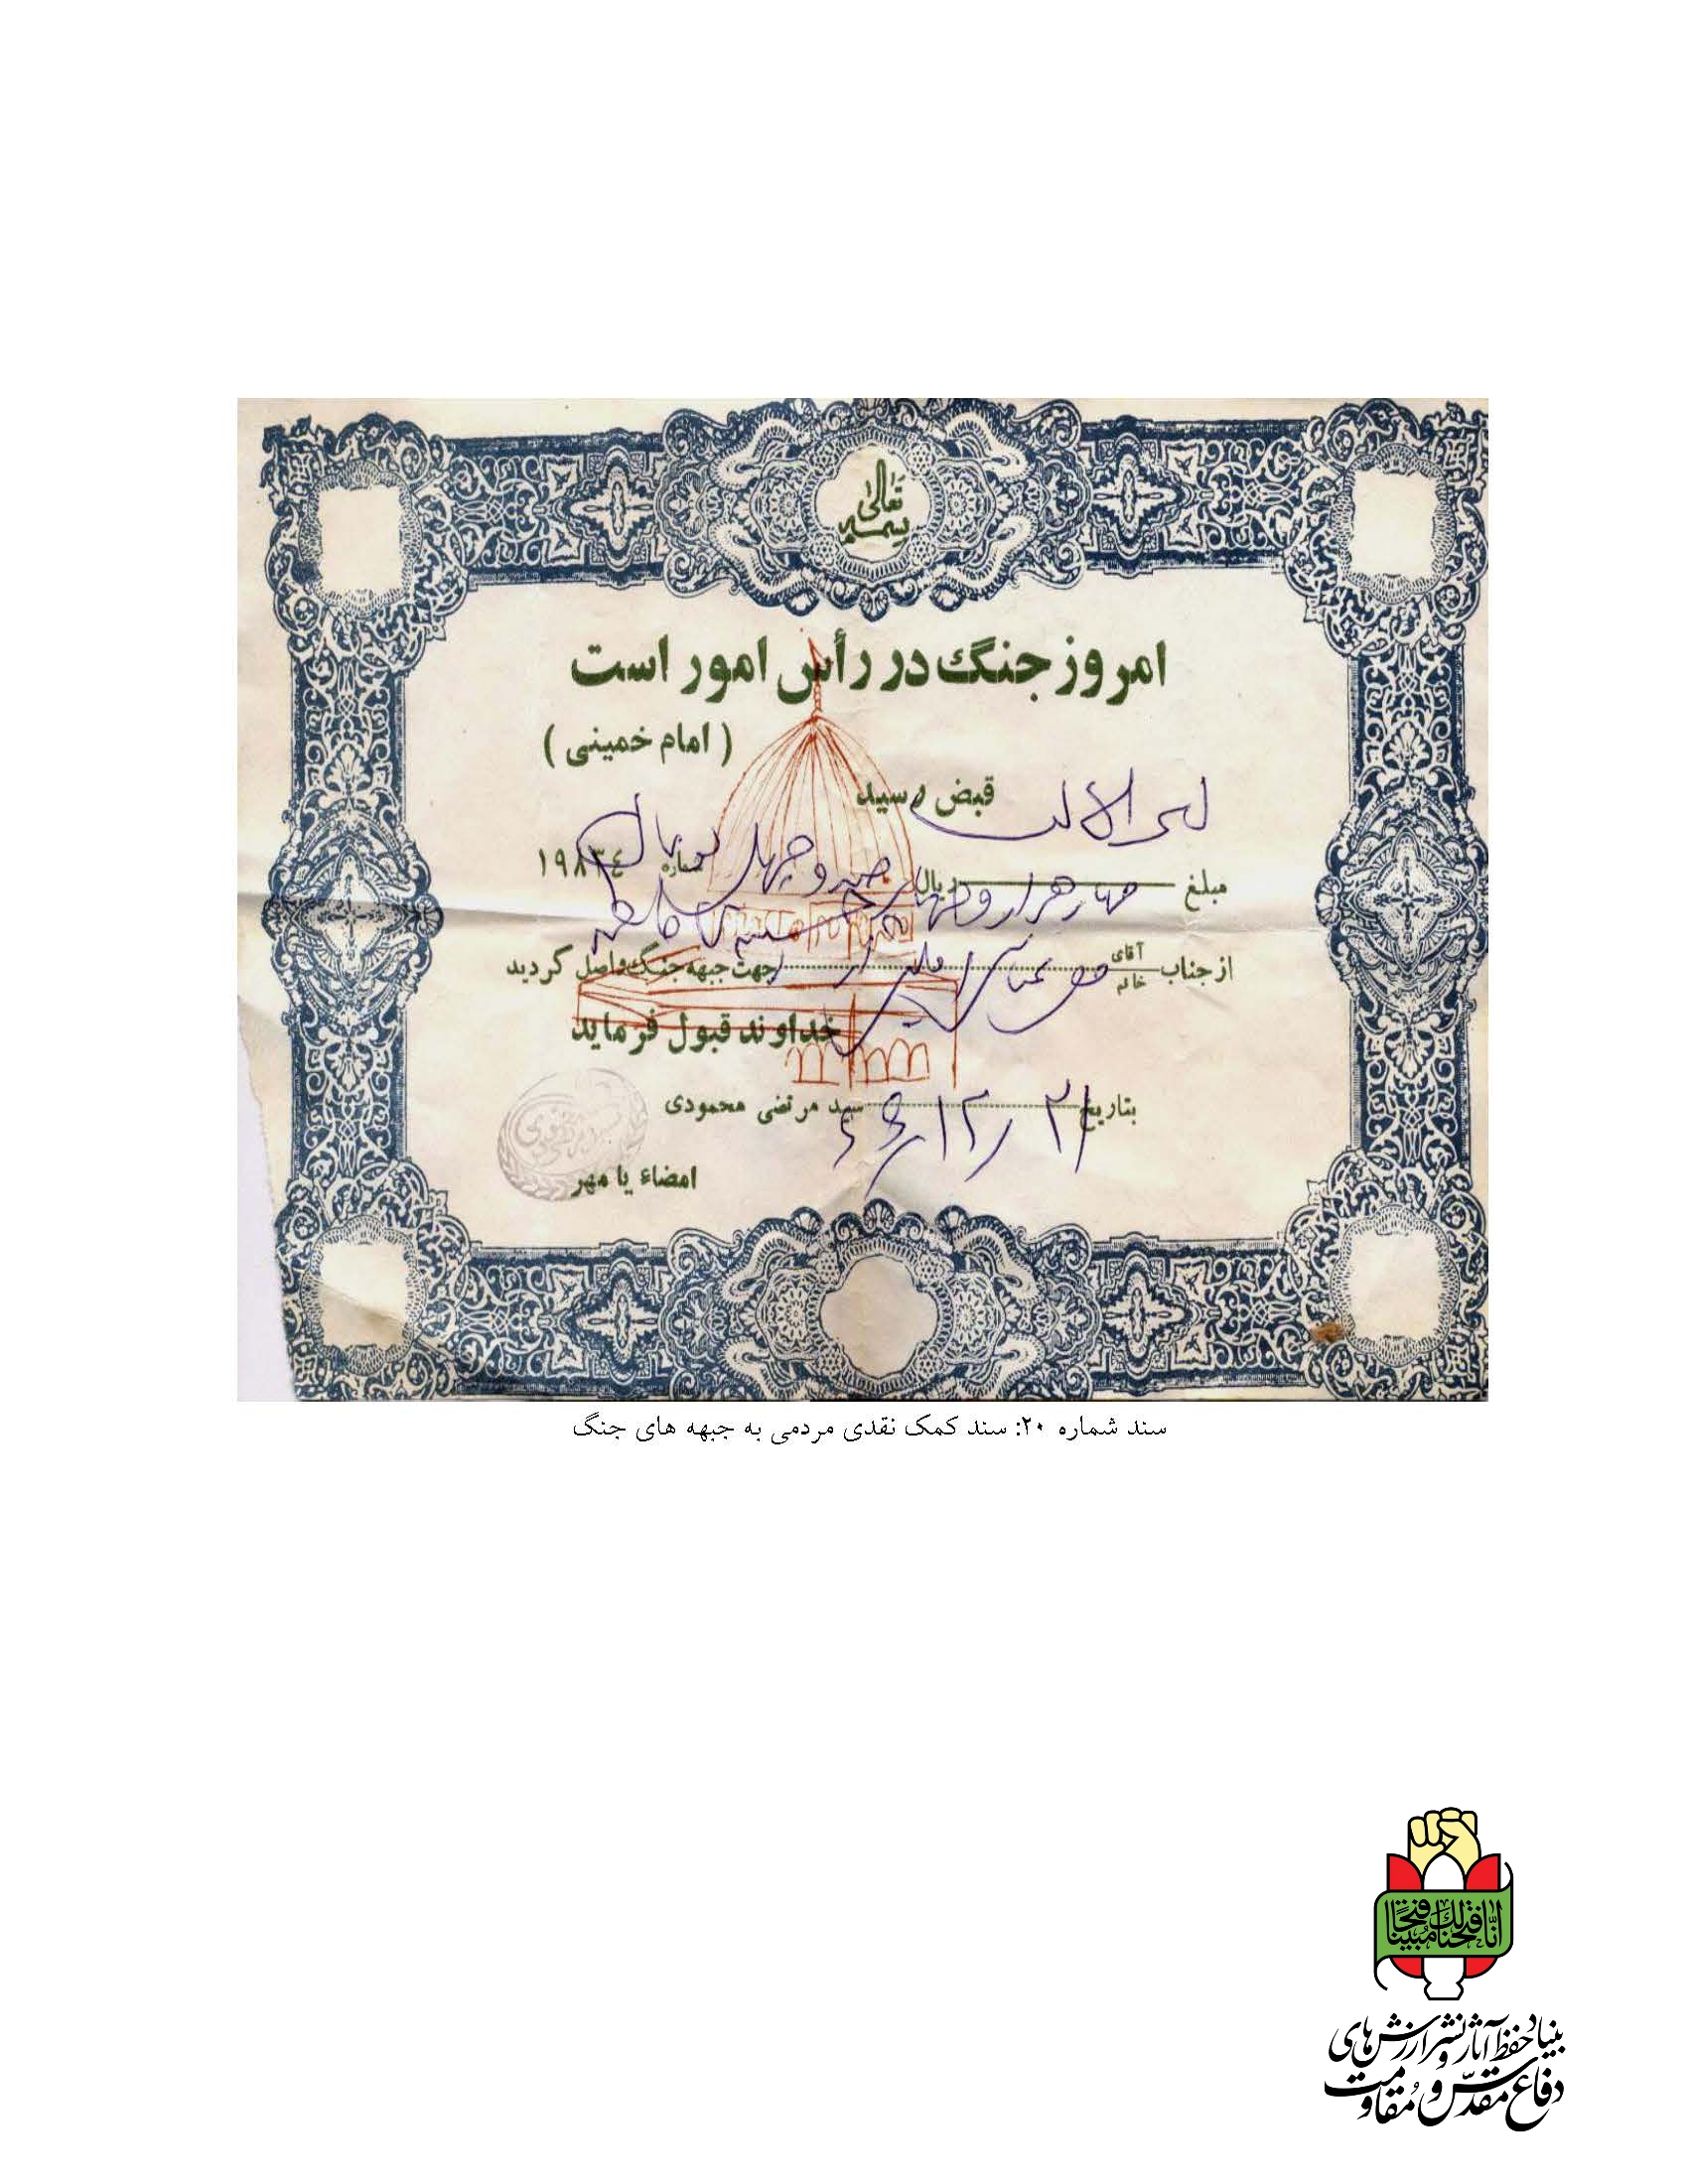 بسمه تعالی
امروز جنگ در رأس امور است
( امام خمینی )
قبض رسید
شماره ۱۹۸۳٤
مبلغ چهار هزار و چهار صد و چهل ریال
ریال
از جناب آقای خانم عباسی از جهت جبهه جنگ واصل گردید
خداوند قبول فرماید
بتاریخ ۲۱ / ۱۲ / ۶۵ سید مرتضی محمودی
امضاء یا مهر
سند شماره ۲۰: سند کمک نقدی مردمی به جبهه های جنگ
انّا فتحنا لک فتحاً مبیناً
بنیاد حفظ آثار و نشر ارزش‌های
دفاع مقدّس و مقاومت